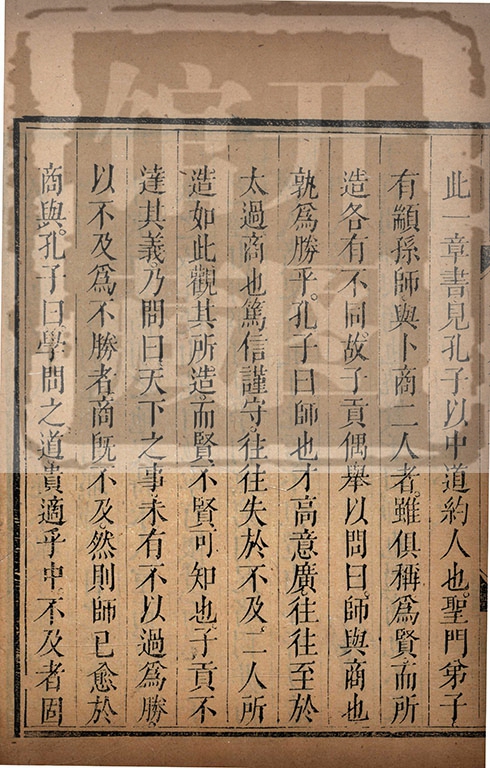 此一章書見孔子以中道約人也。聖門弟子
有顓孫師與卜商二人者。雖俱稱爲賢而所
造各有不同。故子貢偶舉以問曰。師與商也
孰爲勝乎。孔子曰師也才高意廣。往往至於
太過商也篤信謹守。往往失於不及。二人所
造如此觀其所造。而賢不賢可知也子貢不
達其義乃問曰天下之事。未有不以過爲勝。
以不及爲不勝者商既不及。然則師已愈於
商與。孔子曰學問之道貴適乎中。不及者固